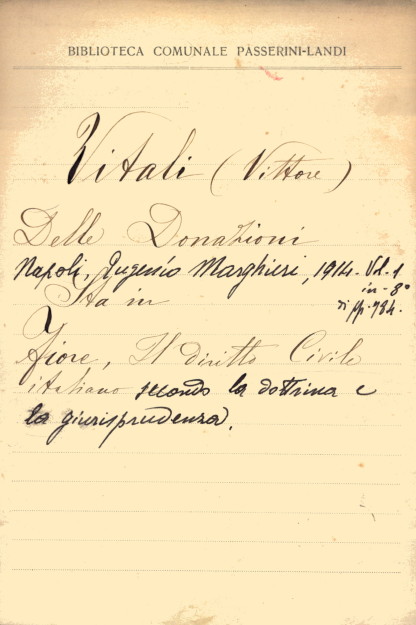 BIBLIOTECA COMUNALE PASSERINI-LANDI
Vitali (Vittore)
Delle Donazioni
Napoli, Eugenio Marghieri, 1914. Vol. 1
in-8°
di pp. 784.
Sta in
Fiore, Il diritto Civile
italiano secondo la dottrina e
la giurisprudenza.